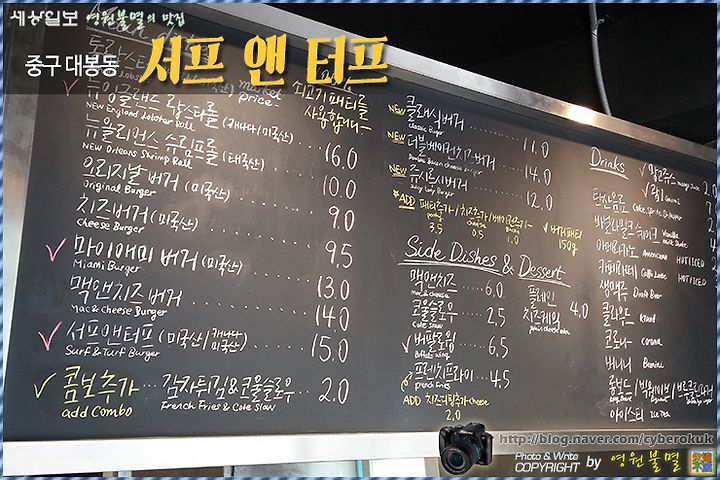 세상일보 영원불멸의 맛집
중구 대봉동 서프 앤 터프
market price
쇠고기패티를
사용합니다
뉴잉글랜드 랍스터롤 (캐나다/미국산)
NEW England Lobster Roll
뉴올리언스 슈림프롤 (태국산) 16.0
NEW Orleans Shrimp Roll
오리지날 버거 (미국산) 10.0
Original Burger
치즈버거 (미국산) 9.0
Cheese Burger
마이애미 버거 (미국산) 9.5
Miami Burger
맥앤치즈 버거 13.0
Mac & Cheese Burger 14.0
서프앤터프 (미국산/캐나다 미국산) 15.0
Surf & Turf Burger
콤보추가 감자튀김&코울슬로우 2.0
add Combo French Fries & Cole Slaw
NEW 클래식버거 11.0
Classic Burger
NEW 더블베이컨치즈버거 14.0
Double Bacon Cheese Burger
NEW 쥬시루시버거 12.0
Juicy Lucy Burger
*ADD 패티추가/치즈추가/베이컨추가
3.5 0.5 1.0
버거패티 150g
Side Dishes & Dessert
맥앤치즈 6.0
mac & cheese
코울슬로우 2.5
Cole Slaw
버팔로윙 6.5
Buffalo wing
프렌치프라이 4.5
French Fries
ADD 치즈딥추가 cheese
2.0
플레인 4.0
치즈케익
Drinks
망고쥬스 mango Juice
탄산음료 Coke. Sprite. Dr.Pepper
바닐라밀크쉐이크 Vanilla Milk Shake
아메리카노 Americano HOT ICED
카페라떼 Caffe Latte HOT ICED
생맥주 Draft Beer
클라우드 Kloud
코로나 corona
버니니 Bernini
아이스티 Ice Tea
http://blog.naver.com/cyberokuk
Photo & Write
COPYRIGHT by 영원불멸